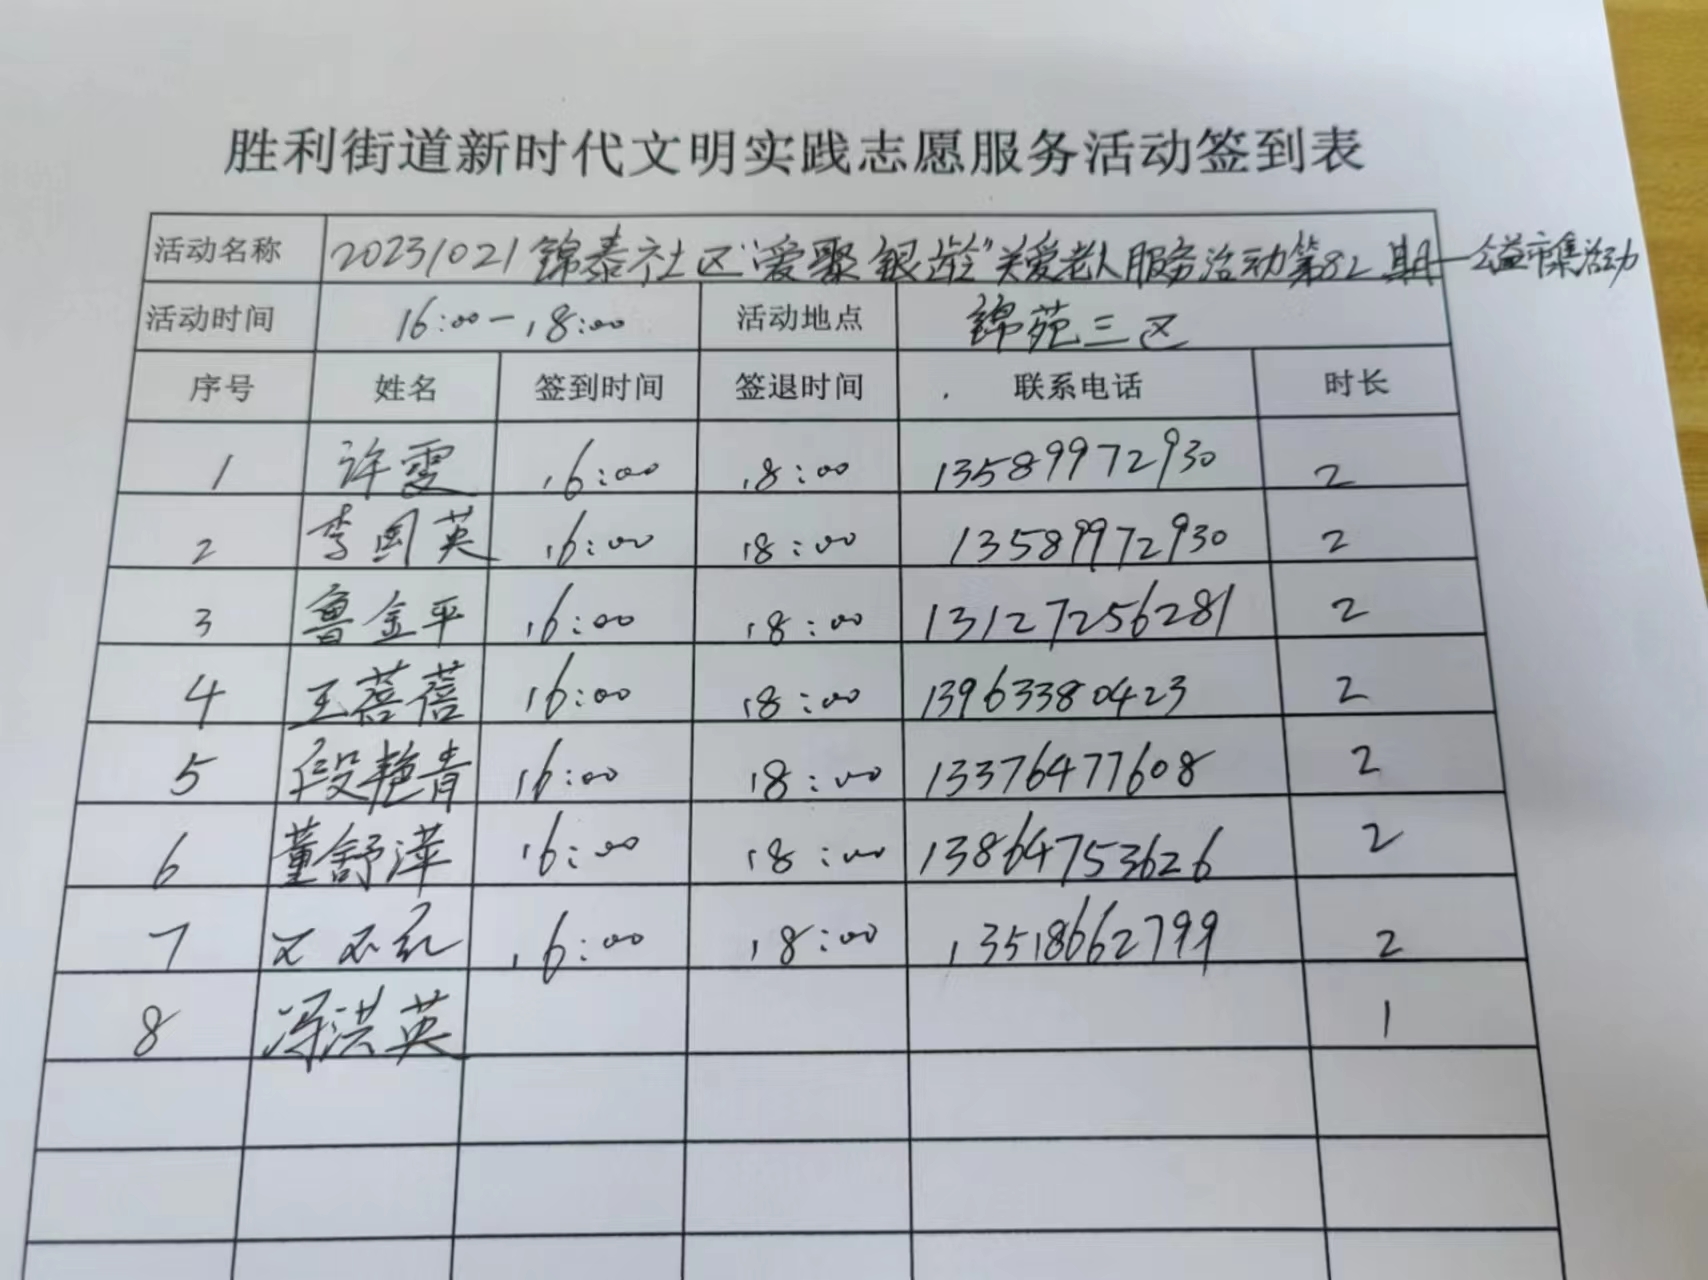 胜利街道新时代文明实践志愿服务活动签到表
活动名称 20231021锦泰社区“爱聚银龄”关爱老人服务活动第82期—公益市集活动
活动时间 16:00-18:00 活动地点 锦苑三区
序号 姓名 签到时间 签退时间 联系电话 时长
1 许雯 16:00 18:00 13589972930 2
2 李国英 16:00 18:00 13589972930 2
3 鲁金平 16:00 18:00 13127256281 2
4 王蓓蓓 16:00 18:00 13963380423 2
5 段艳青 16:00 18:00 13376477608 2
6 董舒萍 16:00 18:00 13864753626 2
7 16:00 18:00 13518662799 2
8 冯洪英 1